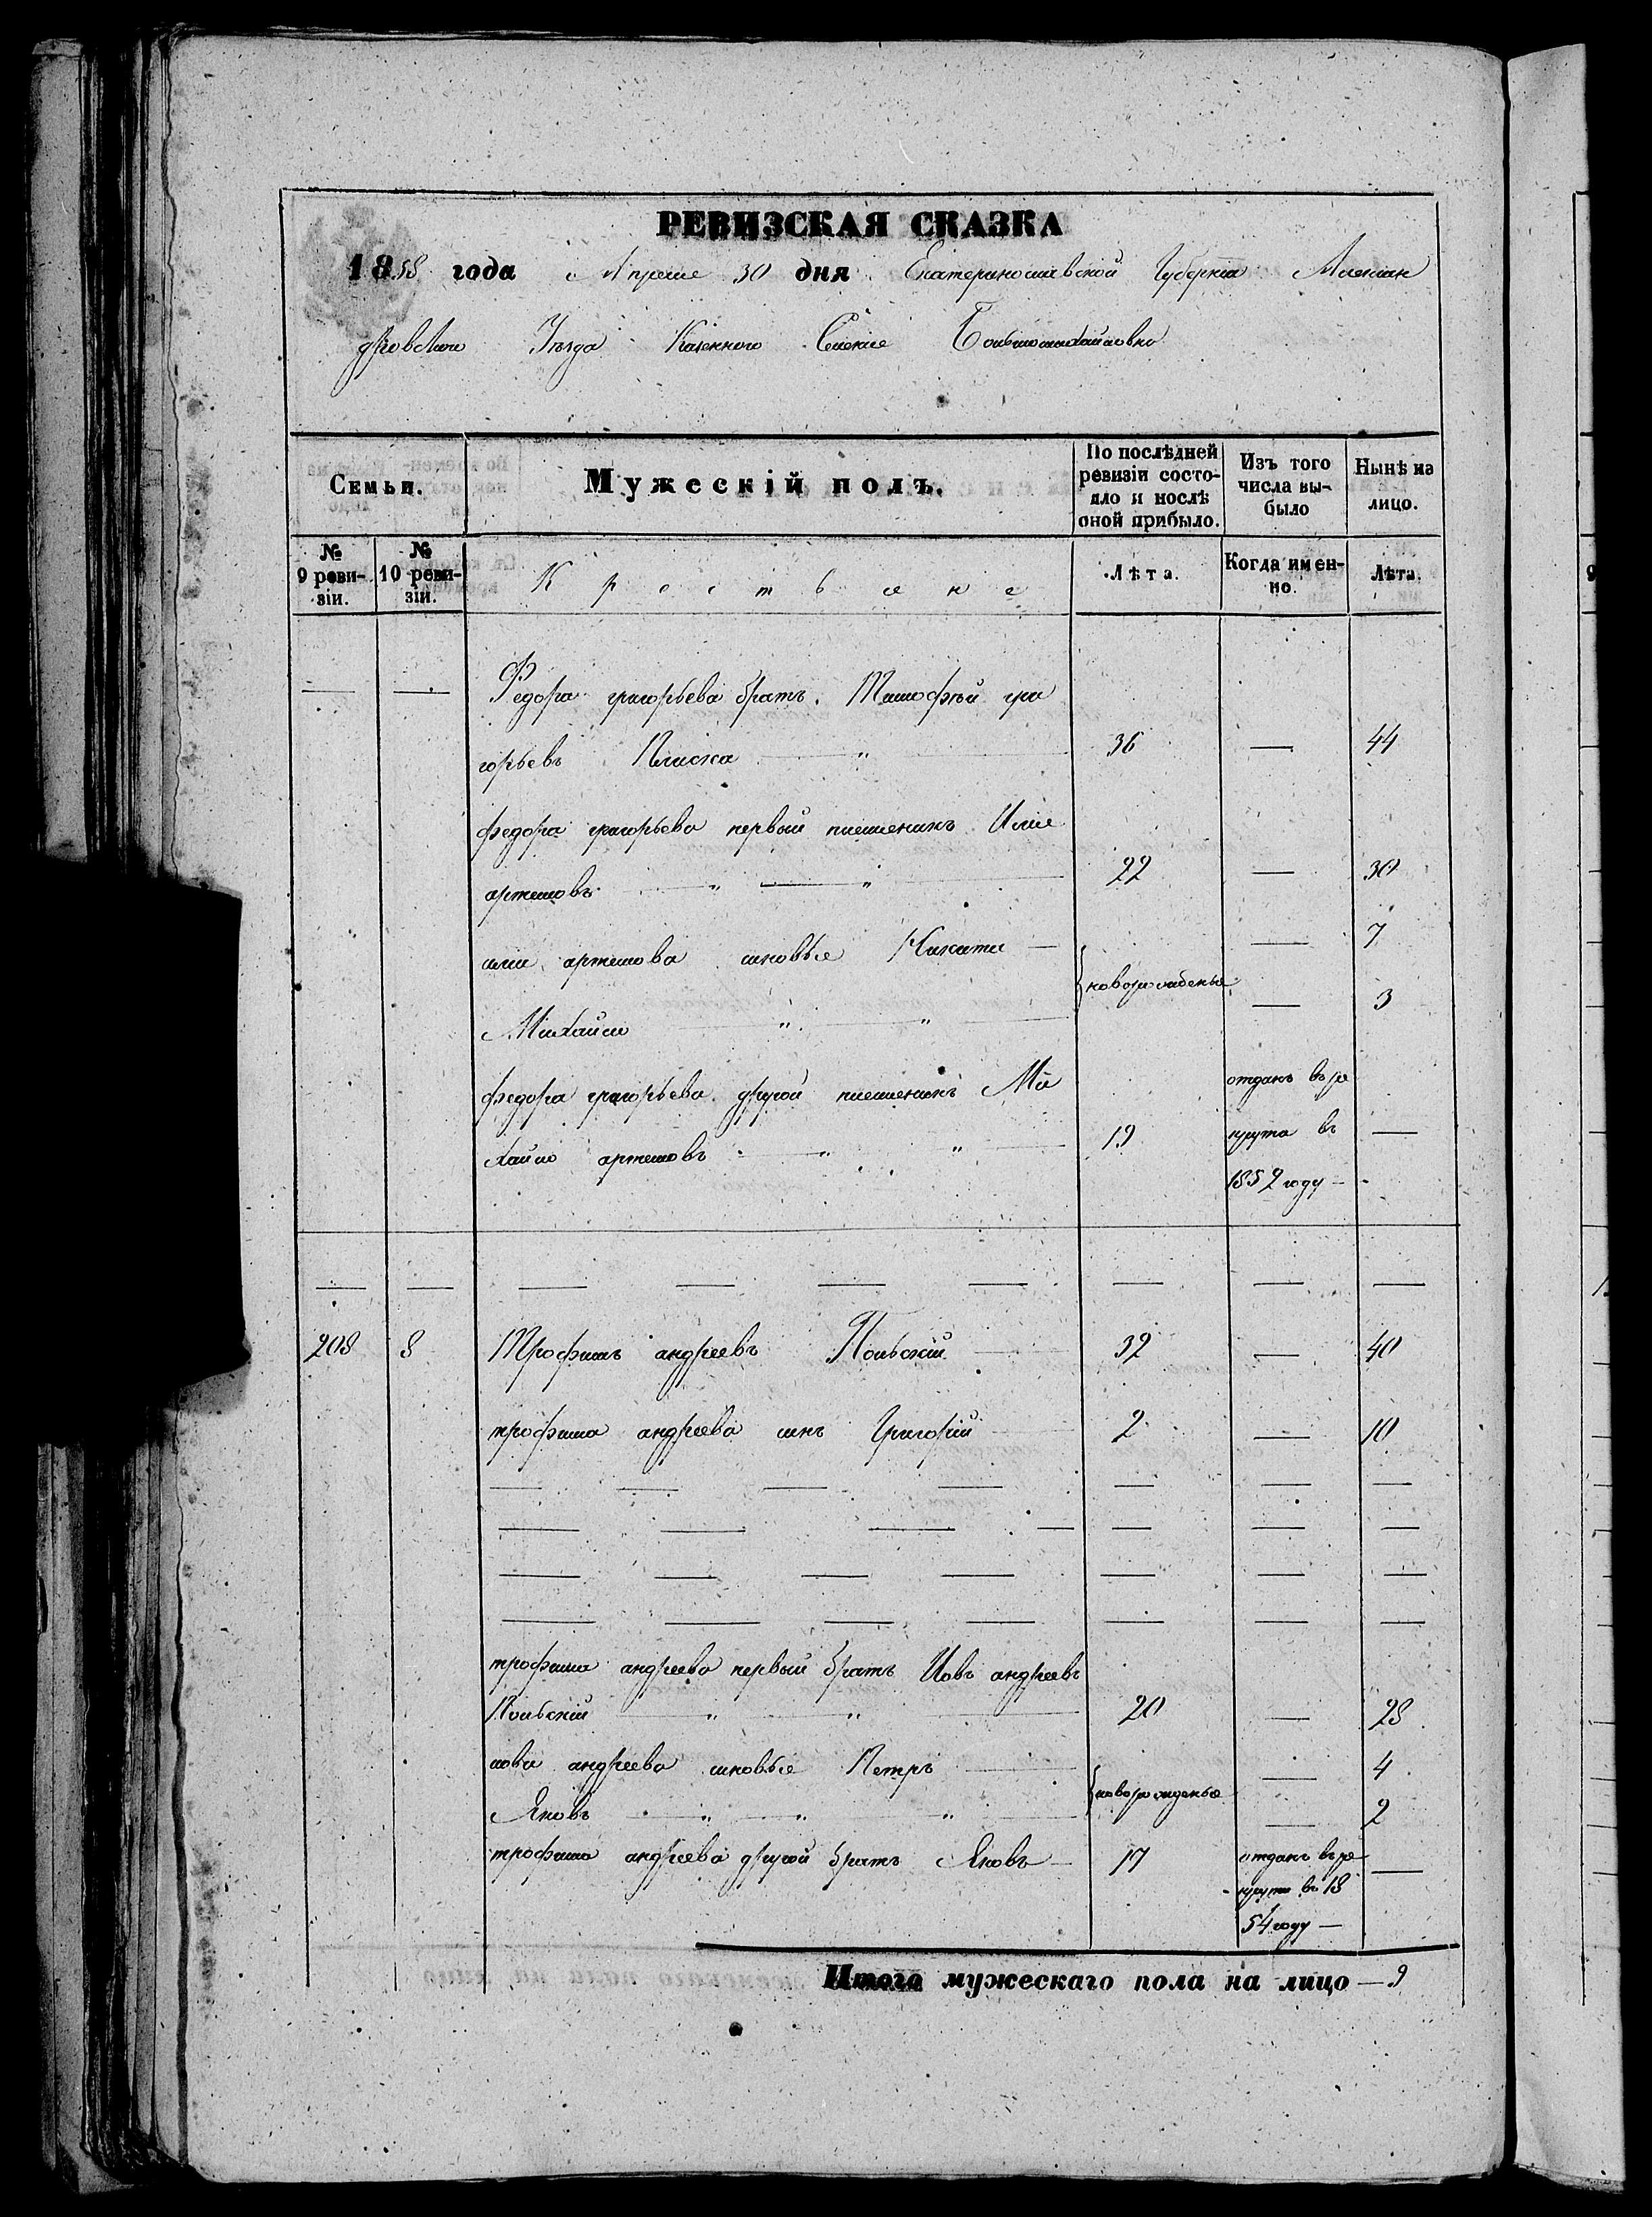 РЕВИЗСКАЯ СКАЗКА
1858 года Апреля 30 дня Екатеринославской Губерніи Алексан
дровскаго Уезда Казенного Селенія Большомихайловки
Семьи.
Мужескій полъ.
По послѣдней ревизіи состояло и послѣ оной прибыло.
Изъ того числа выбыло
Нынѣ на лицо.
№ 9 ревизіи.
№ 10 ревизіи.
Крестьяне
Лѣта.
Когда именно.
Лѣта.
— — Федора григорьева братъ Тимофей гри
горьевъ 36 — 44
федора григорьева первый племеникъ Илия
артемовъ " " 22 — 30
илии артемова синовье Никита — новорожденые — 7
Михайло " " — 3
федора григорьева другой племеникъ Ми отданъ въ ре
хайло артемовъ " " 19 круты въ —
1852 году —
— — — — — — — — —
208 8 Трофимъ андреевъ Польскій 32 — 40
трофима андреева синъ Григорій 2 — 10
— — — — — — —
— — — — — — —
— — — — — — —
— — — — — — —
трофима андреева первый братъ Иовъ андреевъ
Польскій " " 20 — 28
иова андреева синовье Петръ новорожденые — 4
Яковъ " " " — 2
трофима андреева другой братъ Яковъ — 17 отданъ въ ре —
круты въ 18
54 году —
Итого мужескаго пола на лицо — 9